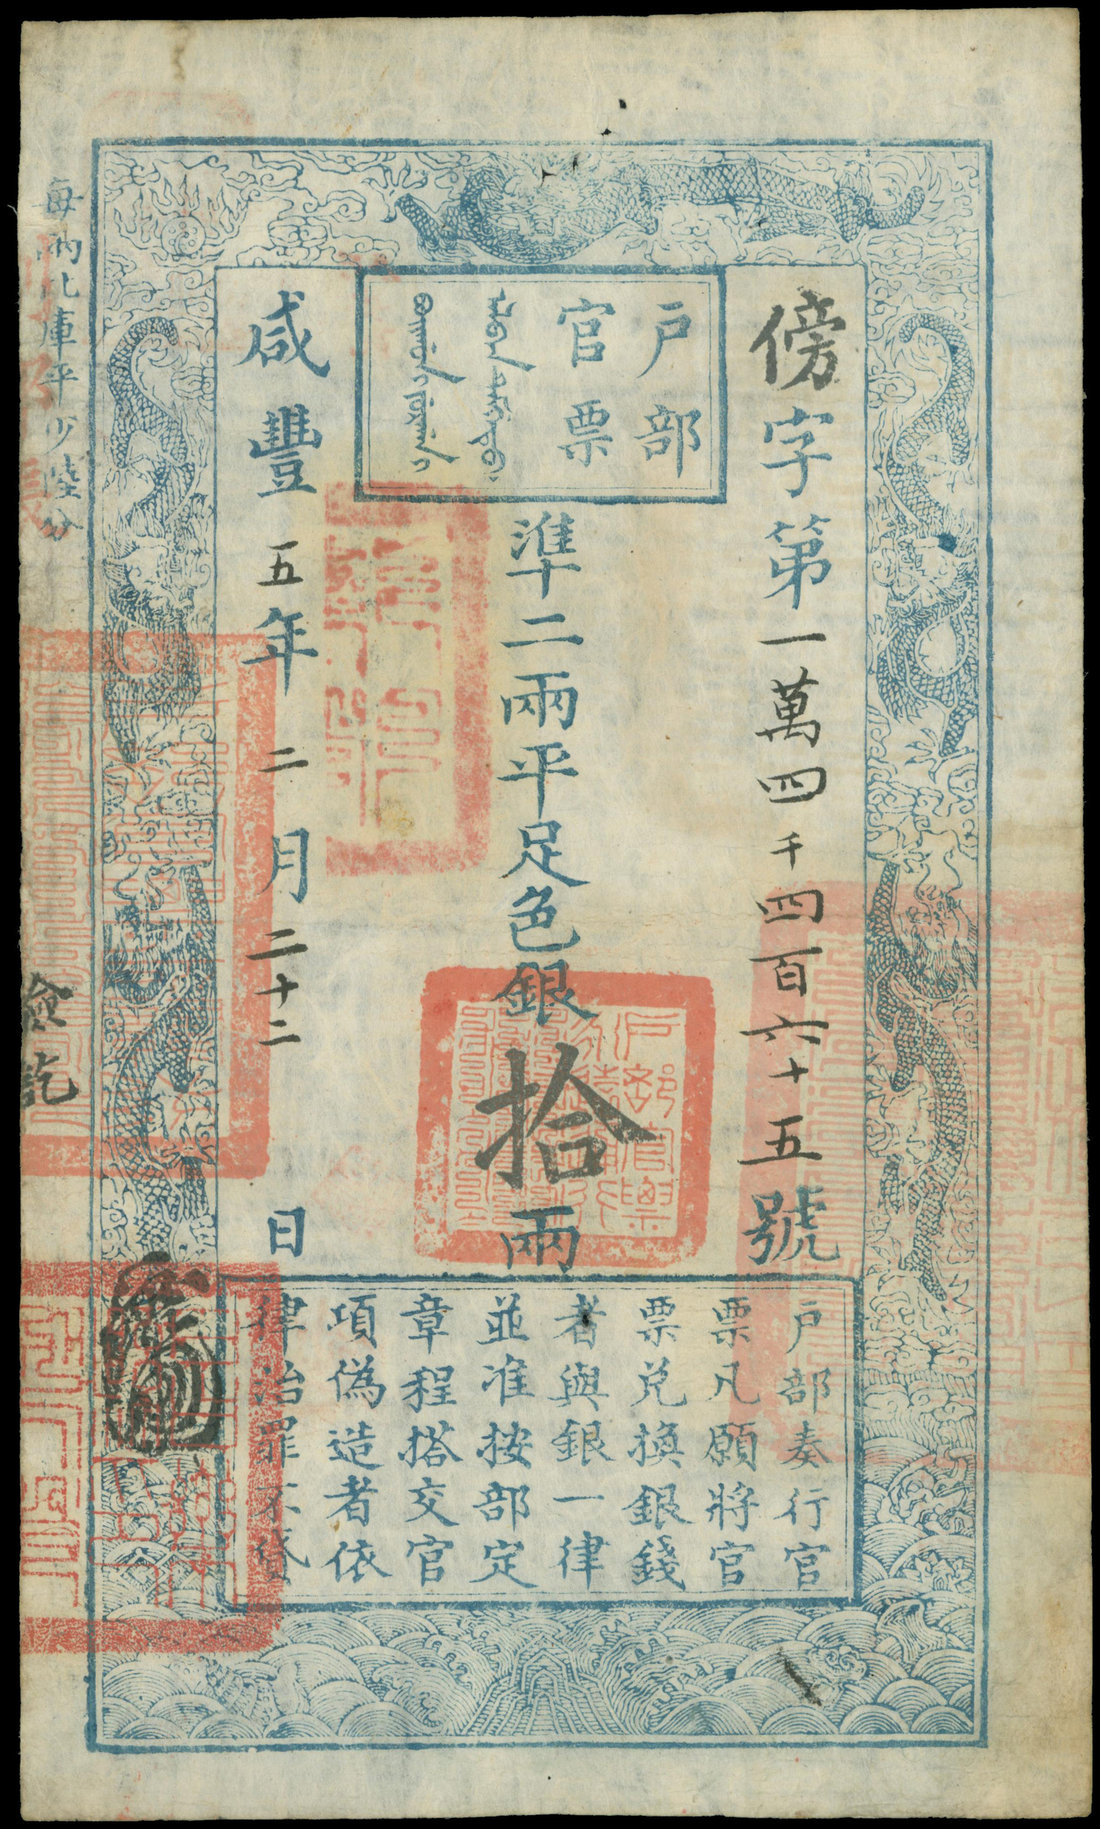 戶部
官票
傍字第一萬四千四百六十五號
準二兩平足色銀拾兩
咸豐五年二月二十二日
戶部奏行官
票凡願將官
票兌換銀錢
者與銀一律
並准按部定
章程搭交官
項偽造者依
律治罪不貸
每兩比庫平少陸分
驗訖